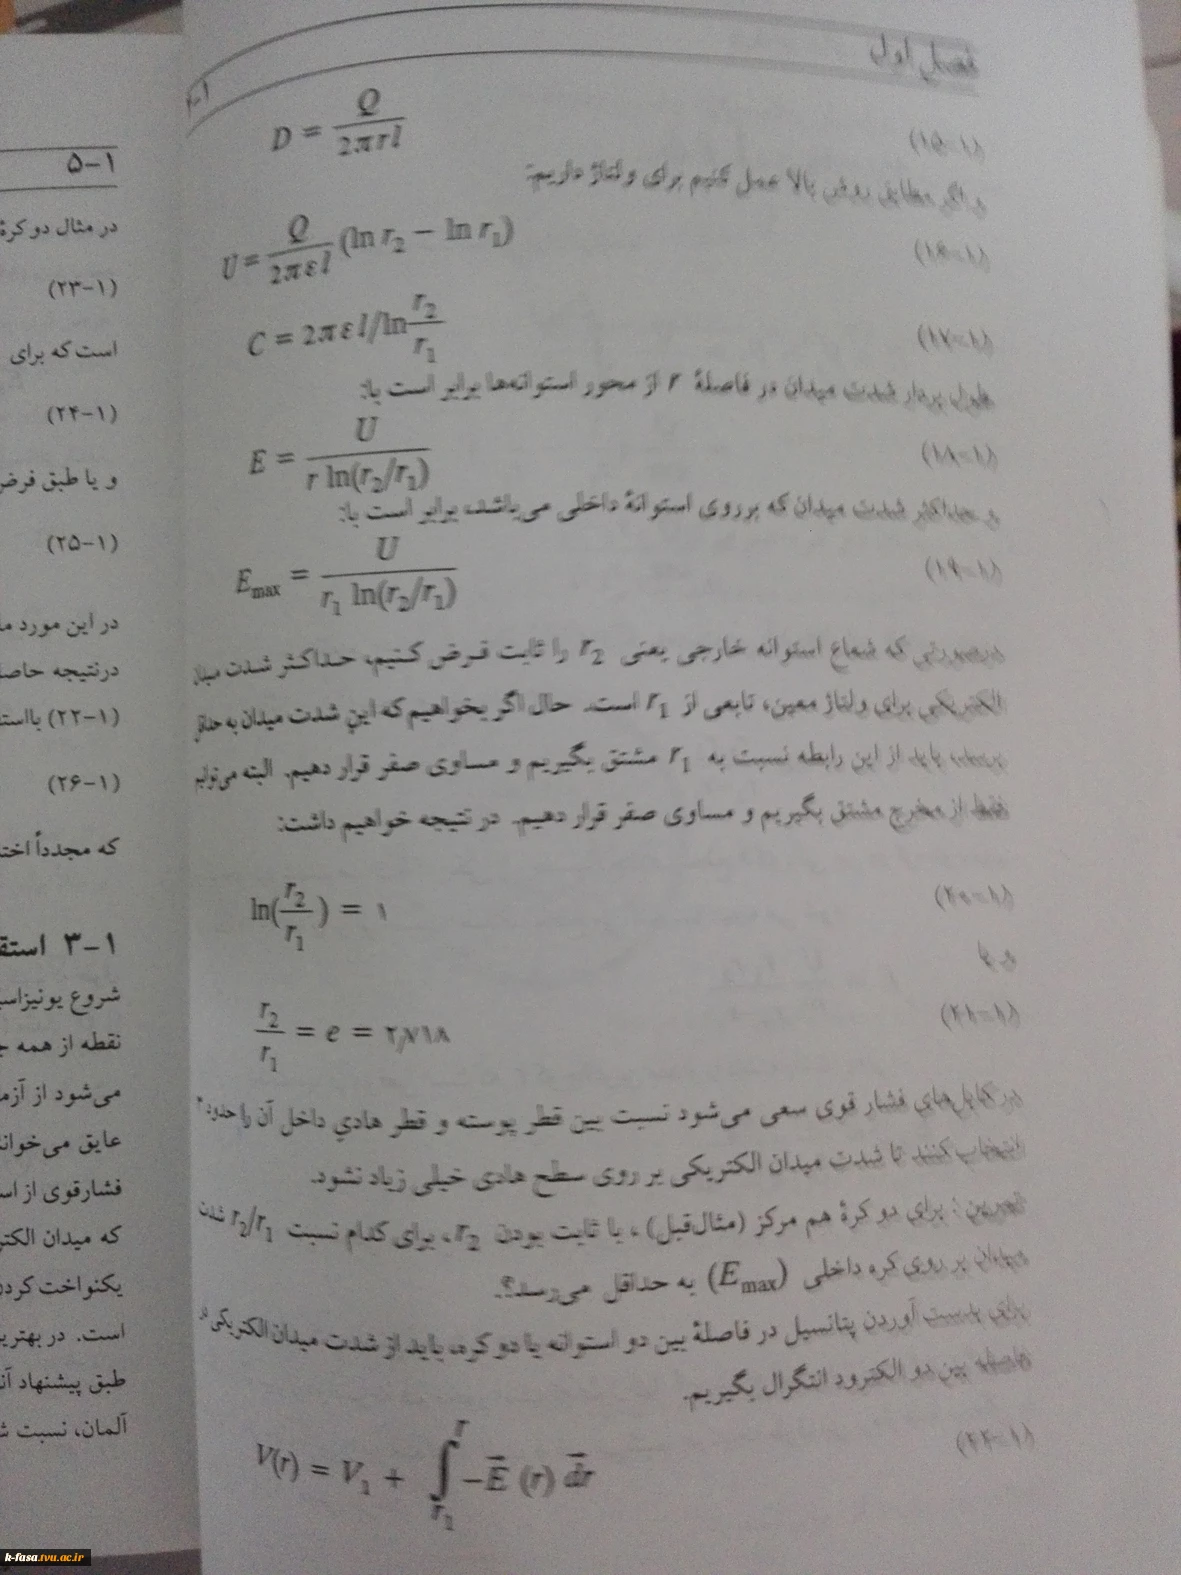 فصل اول
۴-۱
D = Q / 2πrl (۱-۱۵)
و اگر مطابق روش بالا عمل کنیم برای ولتاژ داریم:
U = Q / 2πεl (ln r₂ − ln r₁) (۱-۱۶)
C = 2πεl/ln r₂/r₁ (۱-۱۷)
طول بردار شدت میدان در فاصلهٔ r از محور استوانه‌ها برابر است با:
E = U / r ln(r₂/r₁) (۱-۱۸)
و حداکثر شدت میدان که برروی استوانهٔ داخلی می‌باشد، برابر است با:
Emax = U / r₁ ln(r₂/r₁) (۱-۱۹)
درصورتی که شعاع استوانه خارجی یعنی r₂ را ثابت فرض کنیم، حداکثر شدت میدان
الکتریکی برای ولتاژ معین، تابعی از r₁ است. حال اگر بخواهیم که این شدت میدان به حداقل
برسد، باید از این رابطه نسبت به r₁ مشتق بگیریم و مساوی صفر قرار دهیم. البته می‌توانیم
فقط از مخرج مشتق بگیریم و مساوی صفر قرار دهیم. در نتیجه خواهیم داشت:
ln(r₂/r₁) = ۱ (۱-۲۰)
و یا
r₂/r₁ = e = ۲٫۷۱۸ (۱-۲۱)
در کابل‌های فشار قوی سعی می‌شود نسبت بین قطر پوسته و قطر هادیِ داخل آن را حدود
انتخاب کنند تا شدت میدان الکتریکی بر روی سطح هادی خیلی زیاد نشود.
تمرین: برای دو کرهٔ هم مرکز (مثال‌قبل)، با ثابت بودن r₂، برای کدام نسبت r₂/r₁ شدت
میدان بر روی کره داخلی (Emax) به حداقل می‌رسد؟.
برای بدست آوردن پتانسیل در فاصلهٔ بین دو استوانه یا دو کره، باید از شدت میدان الکتریکی در
فاصله بین دو الکترود انتگرال بگیریم.
V(r) = V₁ + ∫ᵣ₁ʳ −E⃗ (r) d⃗r (۱-۲۲)
۵-۱
در مثال دو کرهٔ
(۱-۲۳)
است که برای
(۱-۲۴)
و یا طبق فرض
(۱-۲۵)
در این مورد ما
درنتیجه حاصل
(۱-۲۲) بااستف
(۱-۲۶)
که مجدداً اخت
۱-۳ استق
شروع یونیزاس
نقطه از همه ج
می‌شود از آزم
عایق می‌خوان
فشارقوی از اس
که میدان الکتر
یکنواخت کردن
است. در بهترین
طبق پیشنهاد آن
آلمان، نسبت ش
k-fasa.tvu.ac.ir